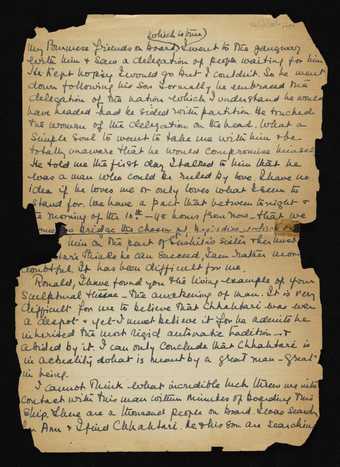 (which is true)
My Burmese friends on board. I went to the gangway
with him & saw a delegation of people waiting for him
He kept hoping I would go but I couldn't. So he went
down following his Son & really he embraced the
delegation of the nation which I understand he would
have headed had he sided with partition. He touched
the women of the delegation on the head. What a
simple soul to want to take me with him the
totally unaware that he would compromise himself
He told me the first day I talked to him that he
was a man who could be ruled by love. I have no
idea if he loves me or only loves what I seem to
stand for. We have a pact that between tonight &
the morning of the 10th – 48 hours from now – that we
a bridge the chasm of
him a the part of sister then
thinks he can succeed, I am rather more
doubtful. It has been difficult for me.
Ronald, I have found you the living example of your
Sculptural theme – The awakening of man. It is very
difficult for me to believe that Chhahtari was ever
a despot & yet I must believe it for he admits he
inherited the most rigid autocratic tradition &
abided by it. I can only conclude that Chhahtari is
in actuality what is meant by a great man – great
in being.
I cannot think what incredible luck threw me into
contact with this man within minutes of boarding this
Ship. There are a thousand people on board. I was searching
Ann & I find Chhahtari. He & his son are searching